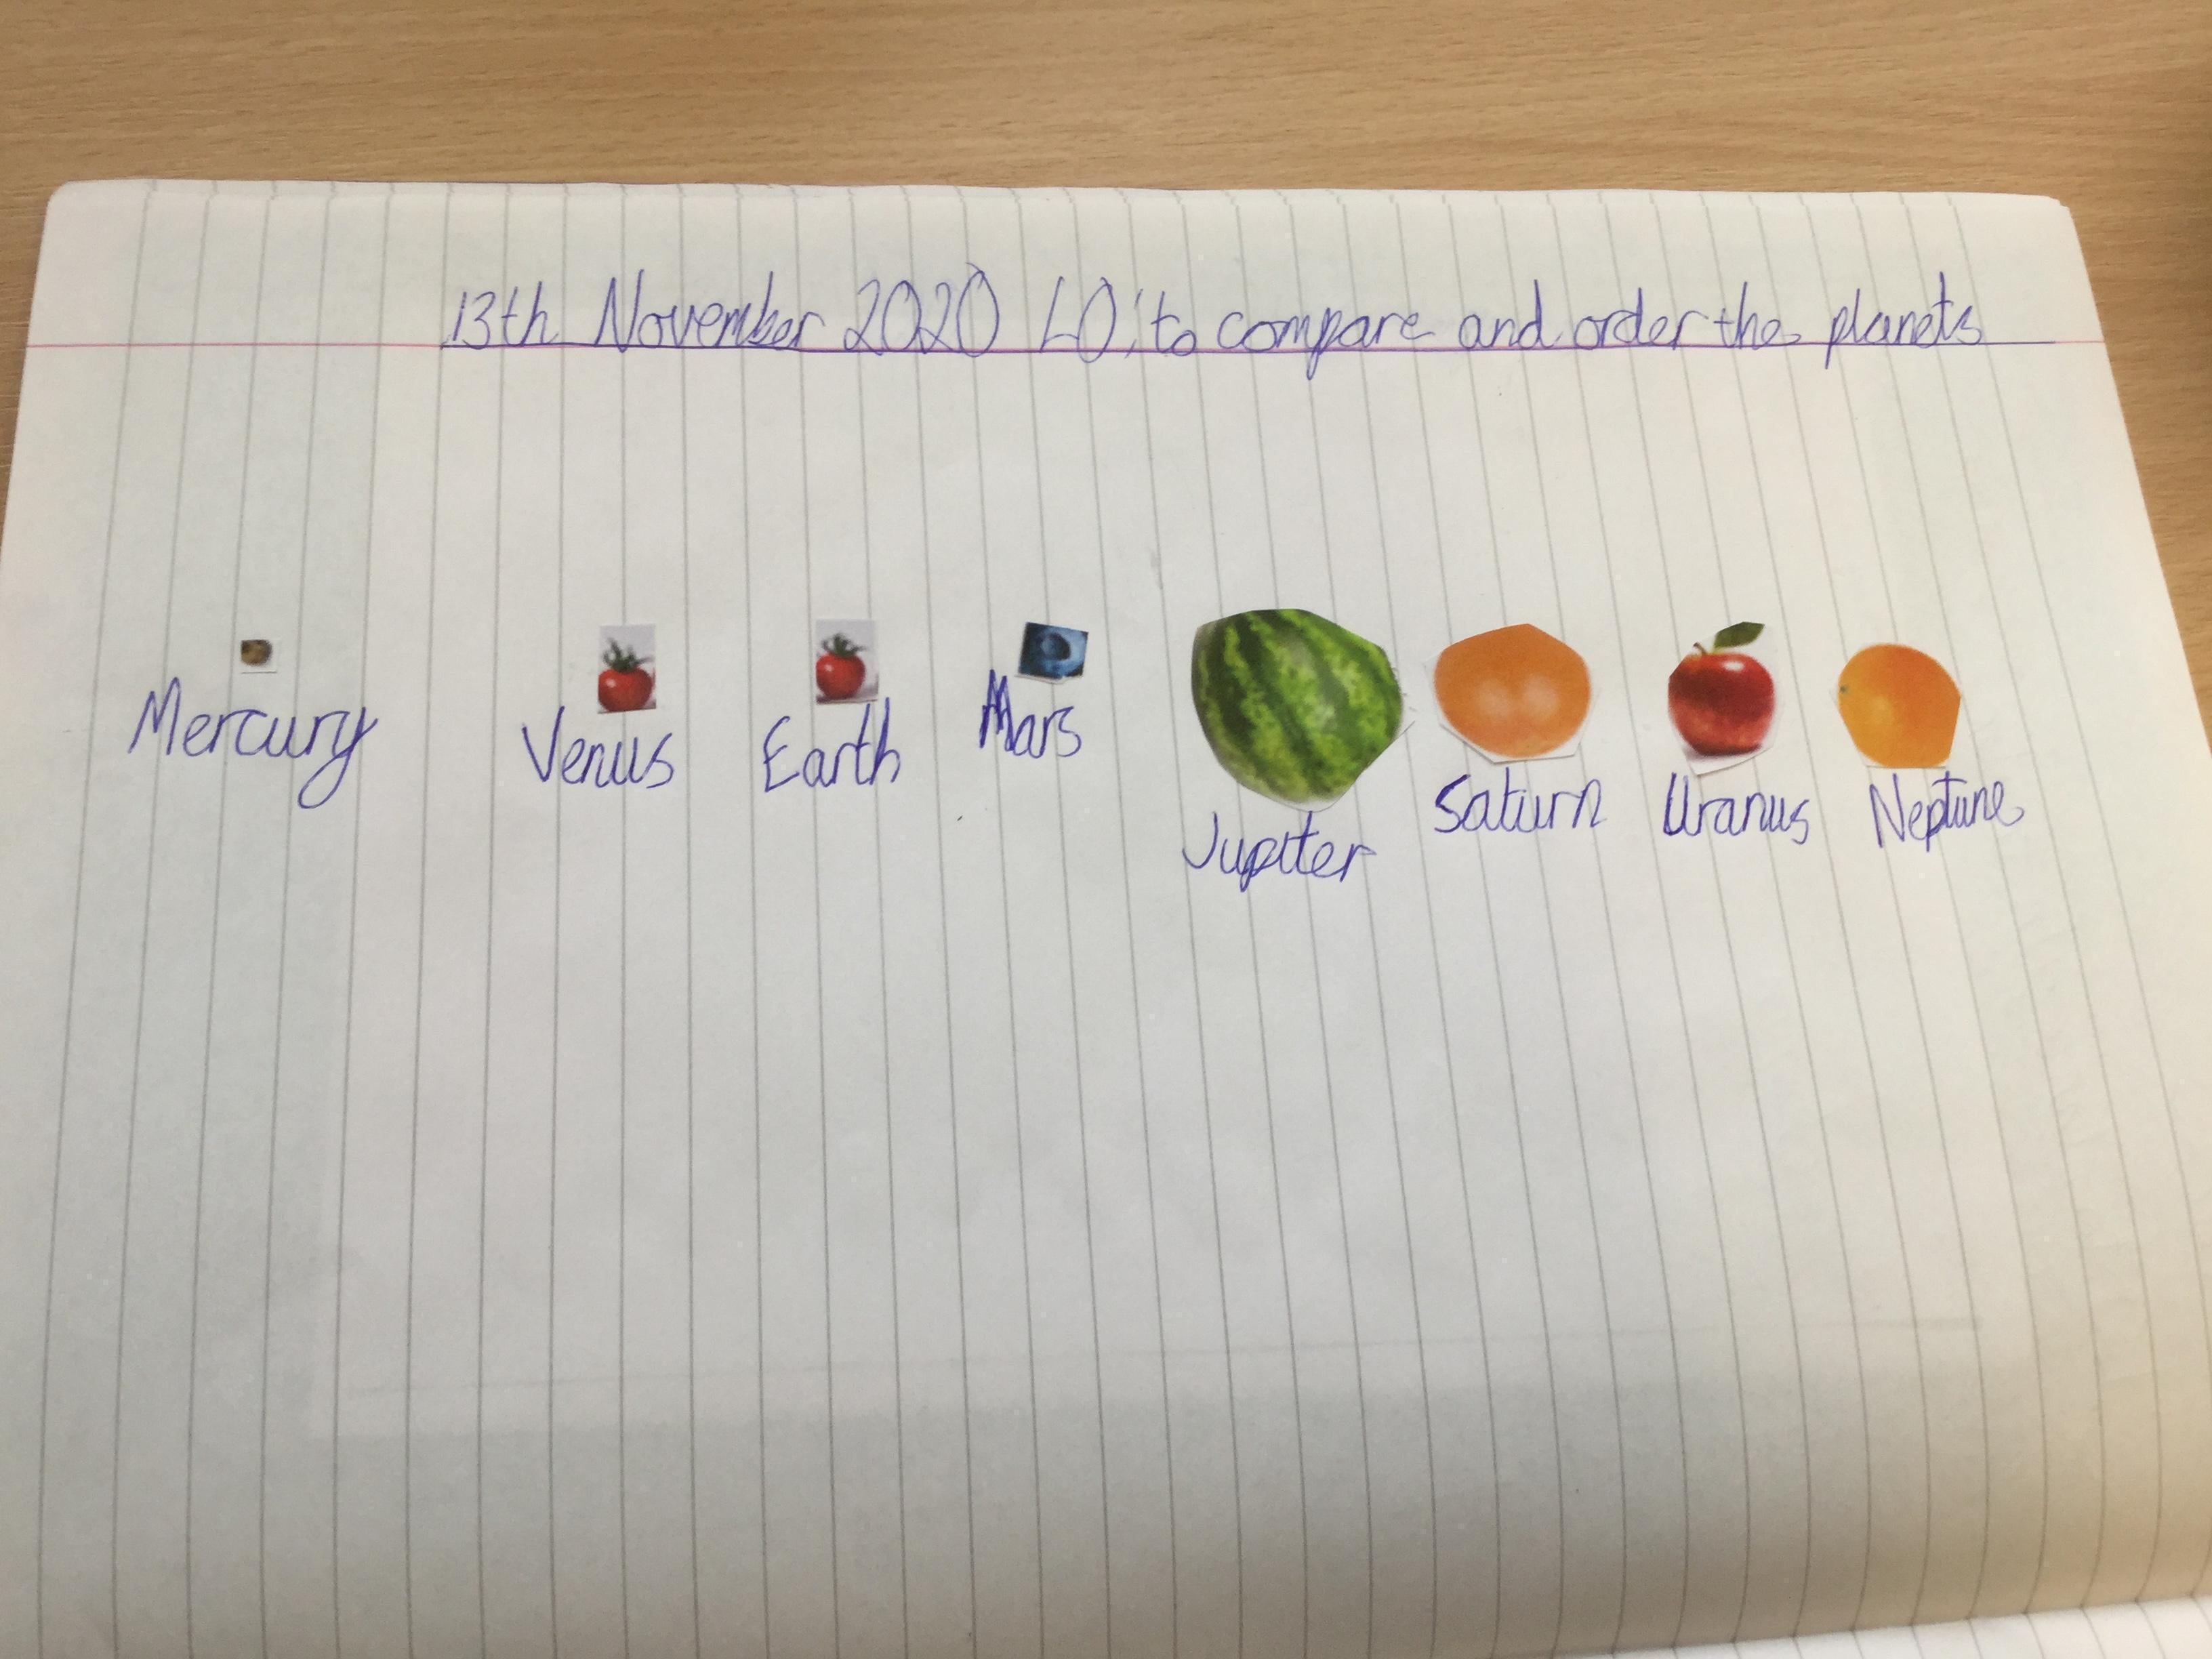 13th November 2020 LO: to compare and order the planets
Mercury Venus Earth Mars Jupiter Saturn Uranus Neptune